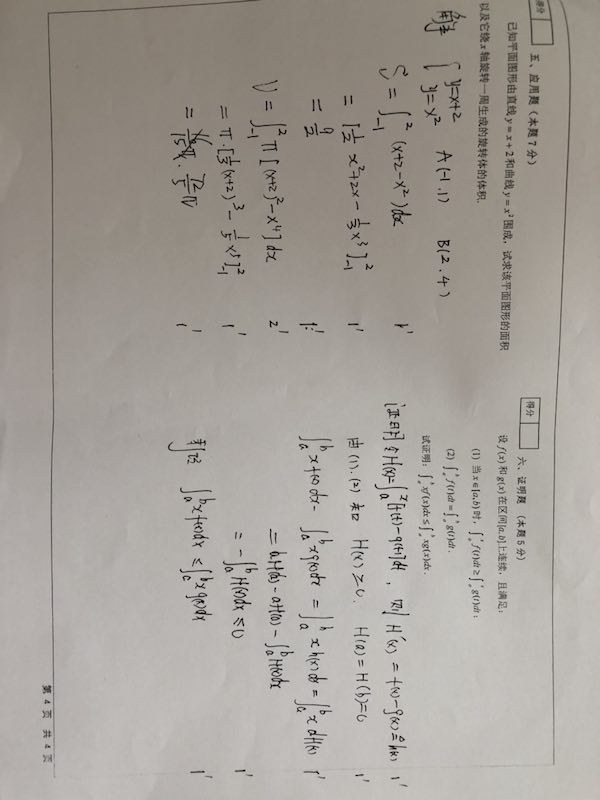 得分
五、应用题(本题7分)
已知平面图形由直线 y = x + 2 和曲线 y = x² 围成,试求该平面图形的面积
以及它绕 x 轴旋转一周生成的旋转体的体积.
解 { y=x+2 y=x² A(-1,1) B(2,4)
S = ∫_{-1}^{2} (x+2-x²)dx 1'
= [1/2 x²+2x-1/3 x³]_{-1}^{2} 1'
= 9/2 1'
V = ∫_{-1}^{2} π[(x+2)²-x⁴]dx 2'
= π·[1/3(x+2)³-1/5 x⁵]_{-1}^{2} 1'
= 72/5 π 1'
得分
六、证明题 (本题5分)
设 f(x) 和 g(x) 在区间[a,b]上连续,且满足:
(1) 当 x∈[a,b) 时, ∫_a^x f(t)dt ≥ ∫_a^x g(t)dt ;
(2) ∫_a^b f(t)dt = ∫_a^b g(t)dt .
试证明: ∫_a^b xf(x)dx ≤ ∫_a^b xg(x)dx .
[证明] 令H(x)=∫_a^x [f(t)-g(t)]dt , 则 H'(x) = f(x)-g(x) ≜ h(x) 1'
由(1).(2) 知 H(x)≥0. H(a)=H(b)=0 1'
∫_a^b xf(x)dx - ∫_a^b xg(x)dx = ∫_a^b x h(x)dx = ∫_a^b x dH(x) 1'
= bH(b)-aH(a)-∫_a^b H(x)dx
= -∫_a^b H(x)dx ≤0 1'
∫_a^b xf(x)dx ≤ ∫_a^b xg(x)dx 1'
第 4 页 共 4 页